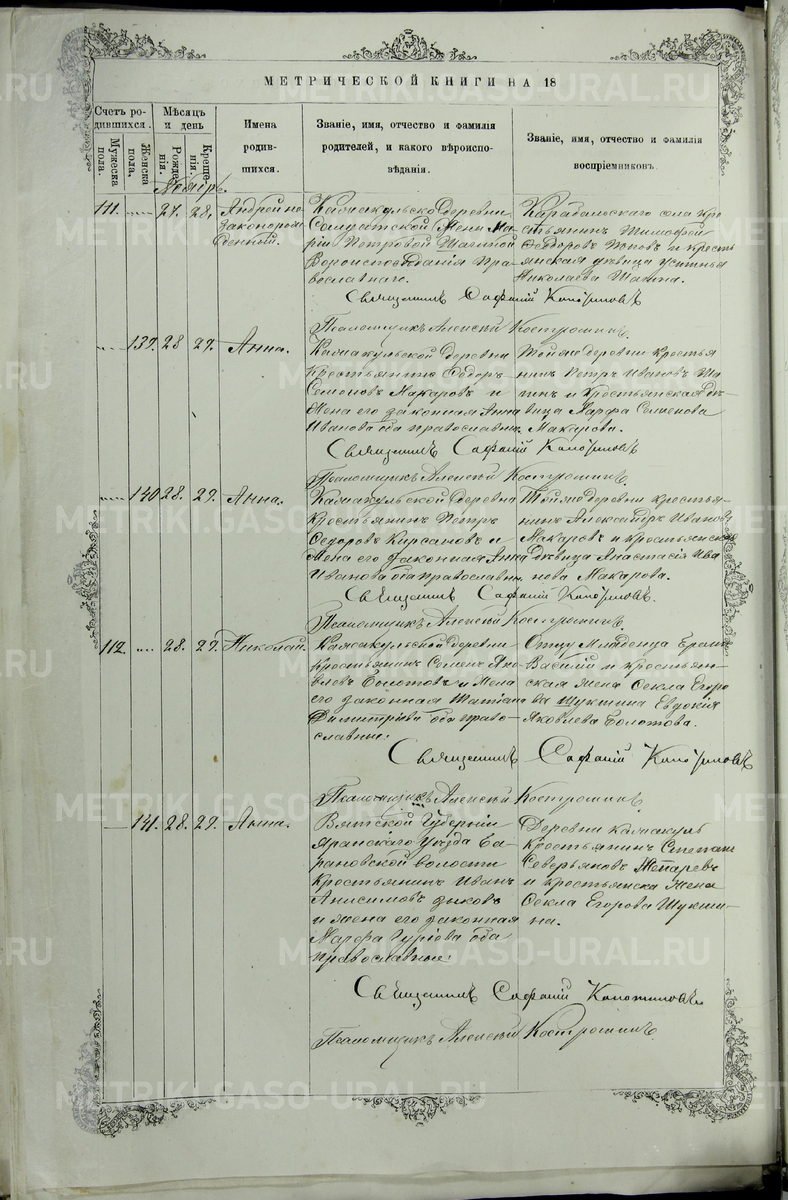 МЕТРИЧЕСКОЙ КНИГИ НА 18
Счетъ родившихся.
Мужеска пола.
Женска пола.
Мѣсяцъ и день
Рожденія.
Крещенія.
Имена родившихся.
Званіе, имя, отчество и фамилія родителей, и какого вѣроисповѣданія.
Званіе, имя, отчество и фамилія воспріемниковъ.
Ноябрь.
111. 27. 28. Андрей незаконорожденный.
Калмакульской деревни
Солдатской жены Ма
ріи Петровой
Вѣроисповѣданія Пра
вославнаго.
села кре
стьянинъ Тимофей
Ѳедоровъ Поповъ и кресть
янская дѣвица Устинья
Николаева
Священникъ Сафоній
Псаломщикъ Алексѣй Костроминъ.
139. 28 29. Анна.
Калмакульской деревни
крестьянинъ Ѳедоръ
Семеновъ Макаровъ и
жена его законная Анна
Иванова оба православн.
Той же деревни крестья
нинъ Петръ Ивановъ
и крестьянская дѣ
вица Марфа Семенова
Макарова.
Священникъ Сафоній
Псаломщикъ Алексѣй Костроминъ.
140 28. 29. Анна.
Калмакульской деревни
крестьянинъ Петръ
Ѳедоровъ Кирсановъ и
жена его законная Анна
Иванова оба православн.
Той же деревни крестья-
нинъ Александръ Ивановъ
Макаровъ и крестьянская
дѣвица Анастасія Ива
нова Макарова.
Священникъ Сафоній
Псаломщикъ Алексѣй Костроминъ.
112. 28. 29. Николай.
Калмакульской деревни
крестьянинъ Семенъ Яко
влевъ Болотовъ и жена
его законная Татіана
Димитріева оба право-
славные.
Отцу младенца братъ
Василій и крестьян-
ская жена Ѳекла Егоро
ва Шукшина Евдокія
Яковлева Болотова.
Священникъ Сафоній
Псаломщикъ Алексѣй Костроминъ.
141. 28. 29. Анна.
Вятской Губерніи
Яранскаго Уѣзда Ба
рановской волости
крестьянинъ Иванъ
Анисимовъ
и жена его законная
Марфа Гуріова оба
православные.
Деревни Калмакуль
крестьянинъ Степанъ
Северьяновъ
и крестьянска жена
Ѳекла Егорова Шукши-
на.
Священникъ Сафоній
Псаломщикъ Алексѣй Костроминъ.
METRIKI.GASO-URAL.RU